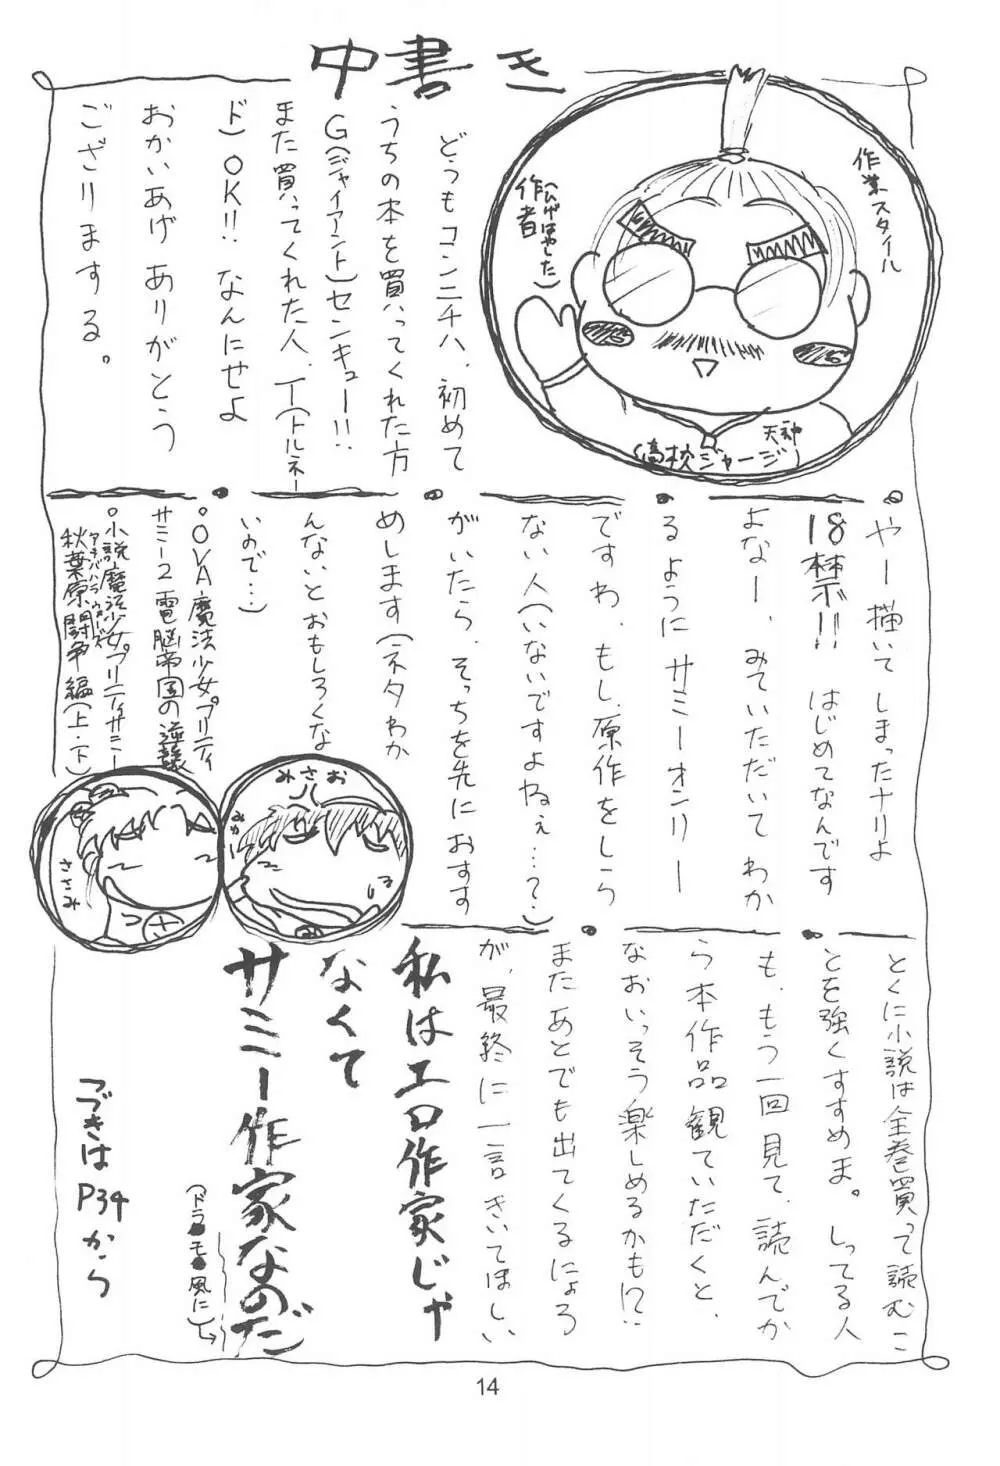 中書き
作業スタイル
作者
(ひげはやした)
天神
(高校ジャージ)
どうもコンニチハ、初めて
うちの本を買ってくれた方
G(ジャイアント)センキュー!!
また買ってくれた人、T(トルネー
ド)OK!! なんにせよ
おかいあげありがとう
ござりまする。
やー描いてしまったナリよ
18禁!! はじめてなんです
よなー、みていただいてわか
るようにサミーオンリー
ですわ。もし、原作をしら
ない人(いないですよねぇ…?)
がいたら、そっちを先におすす
めします(ネタわか
んないとおもしろくな
いので…)
○OVA魔法少女プリティ
サミー2電脳帝国の逆襲
○小説魔法少女プリティサミー
秋葉原闘争編(上・下)
アキハバラウォーズ
おさみ
さとみ
とくに小説は全巻買って読むこ
とを強くすすめま。しってる人
も、もう一回見て、読んでか
ら本作品観ていただくと、
なおいっそう楽しめるかも!?
またあとでも出てくるにょろ
が、最終に一言きいてほしい
私はエロ作家じゃ
なくて
サミー作家なのだ
(ドラ●モ●風に)
つづきは
P34から
14